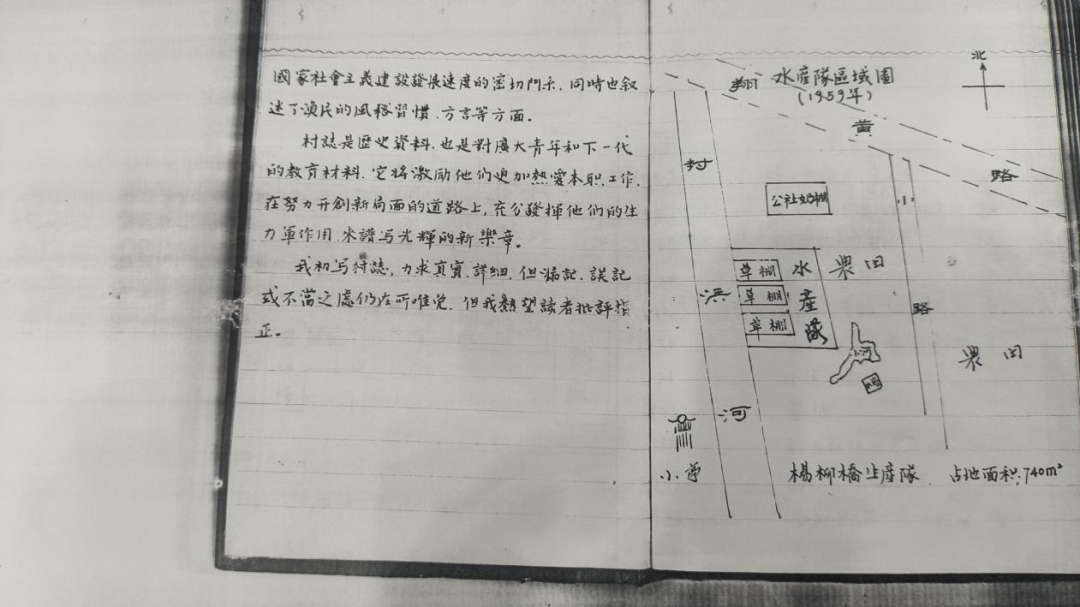 國家社會主義建設發展速度的密切關系,同時也叙
述了漁民的風格習慣、方言等方面。
村誌是歷史資料,也是對廣大青年和下一代
的教育材料,它將激励他們更加熱愛本职工作,
在努力开創新局面的道路上,充分發揮他們的生
力軍作用,来譜写光輝的新樂章。
我初写村誌,力求真實、詳細,但漏記、誤記
或不當之處仍在所唯免,但我懇望讀者批評指
正。
水産隊區域圖
(1959年)
北
翔
黄
路
封
浜
河
公社奶棚
小
路
草棚
草棚
草棚
水産隊
農田
小河
農田
小学
楊柳橋生産隊 占地面积:740m²